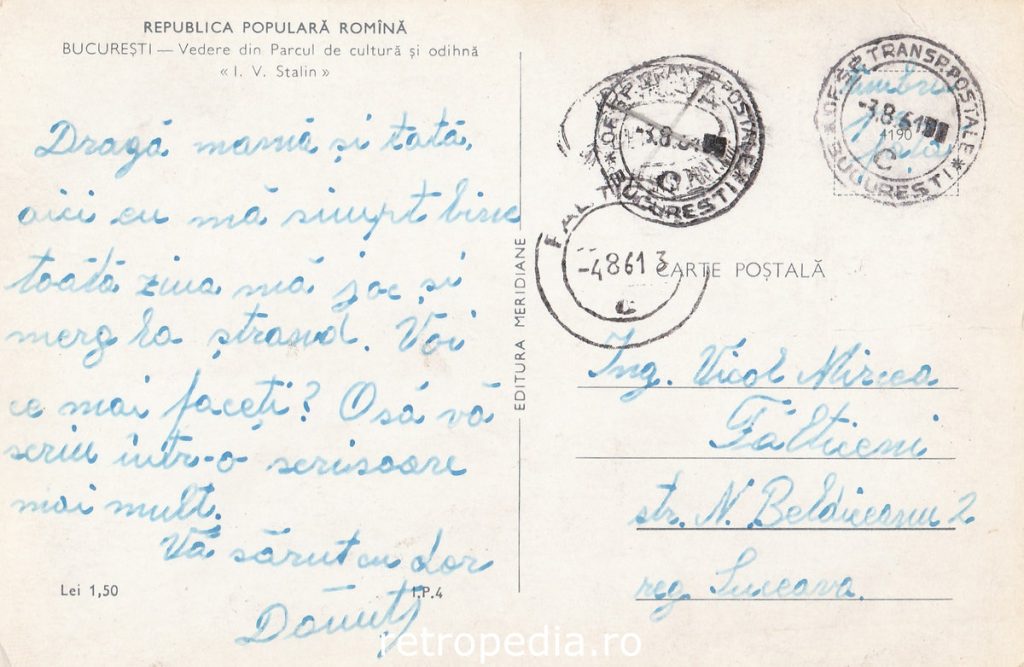 REPUBLICA POPULARĂ ROMÎNĂ
BUCUREȘTI — Vedere din Parcul de cultură și odihnă
« I. V. Stalin »
Dragă mamă și tată,
aici eu mă simțt bine
toată ziua mă joc și
merg la ștrand. Voi
ce mai faceți? Osă vă
scriu într-o scrisoare
mai mult.
Vă sărut cu dor
Dănuț
Lei 1,50
I.P.4
EDITURA MERIDIANE
OF. SP. TRANSP. POSTALE
-3.8.61
C
BUCURESTI
FALT
-4861 3
c
OF. SP. TRANSP. POSTALE
-3.8.61
C
BUCURESTI
timbru
4190
față
CARTE POȘTALĂ
Ing. Vicol Mircea
Fălticeni
str. N. Beldiceanu 2
reg Suceava.
retropedia.ro